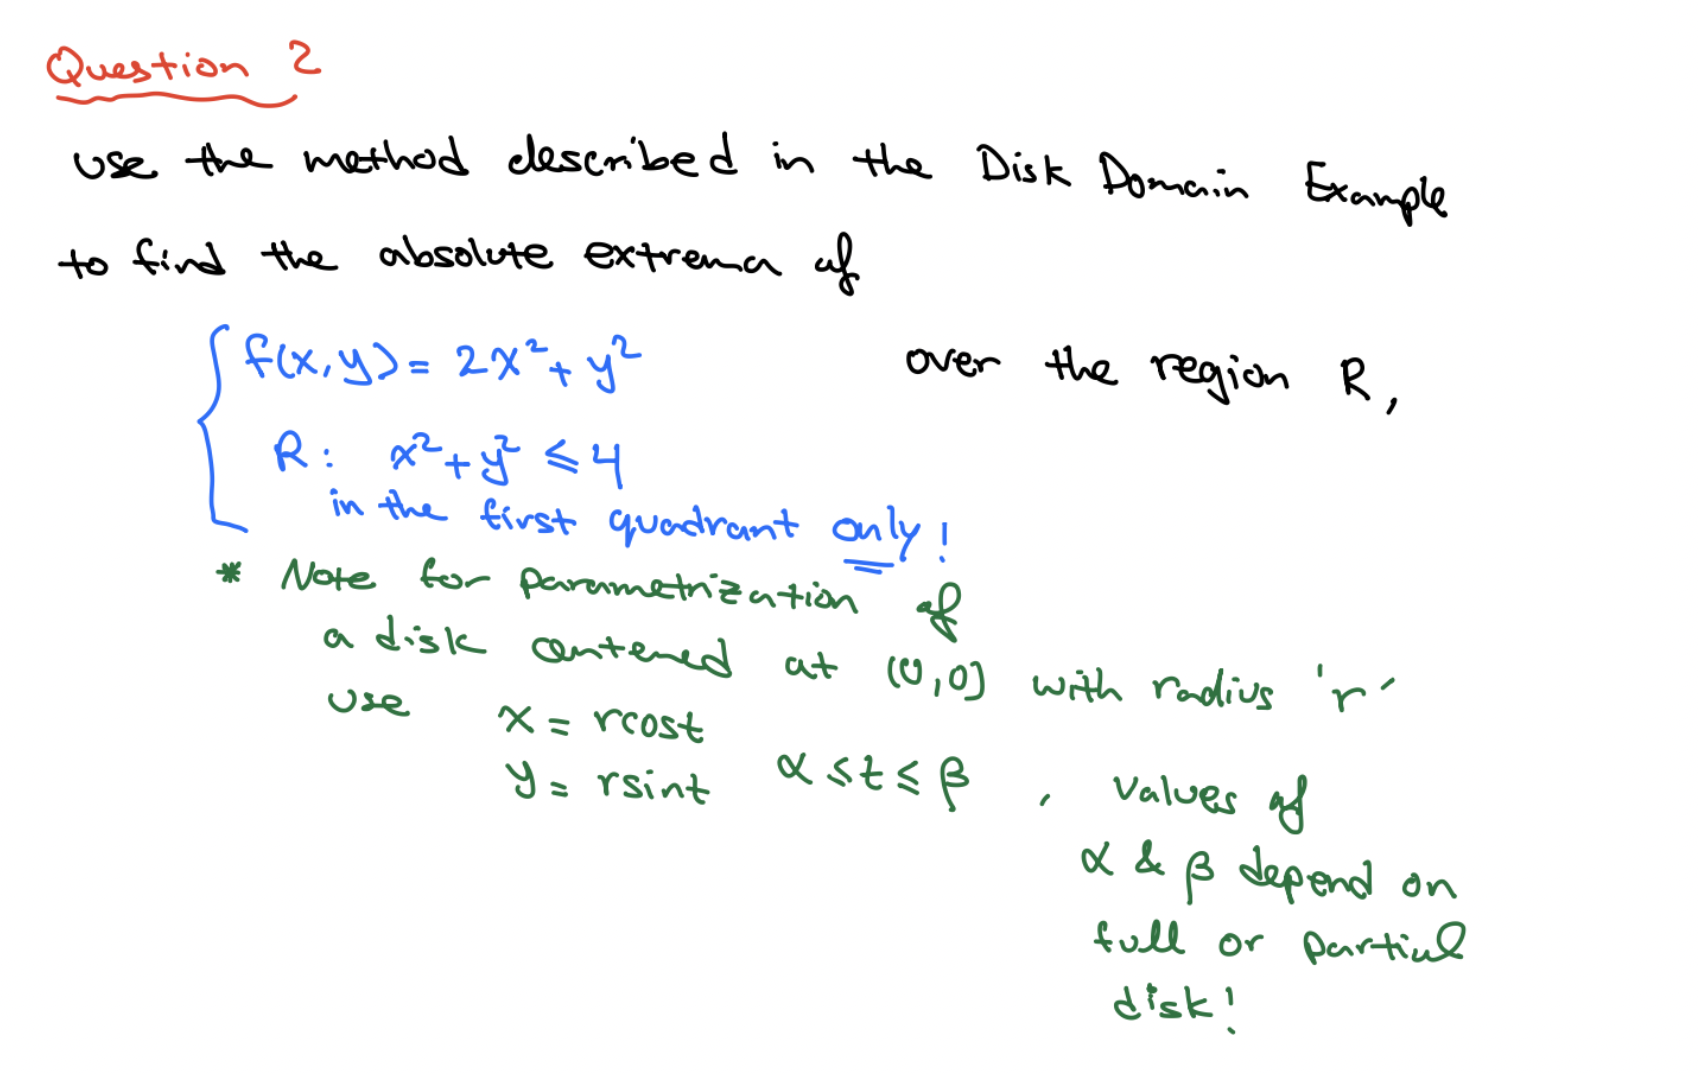 Question 2
use the method described in the Disk Domain Example
to find the absolute extrema of
f(x,y) = 2x² + y² over the region R,
R: x² + y² ≤ 4
in the first quadrant only!
* Note for parametrization of
a disk centered at (0,0) with radius 'r'
use x = rcost
y = rsint α ≤ t ≤ β , values of
α & β depend on
full or partial
disk!